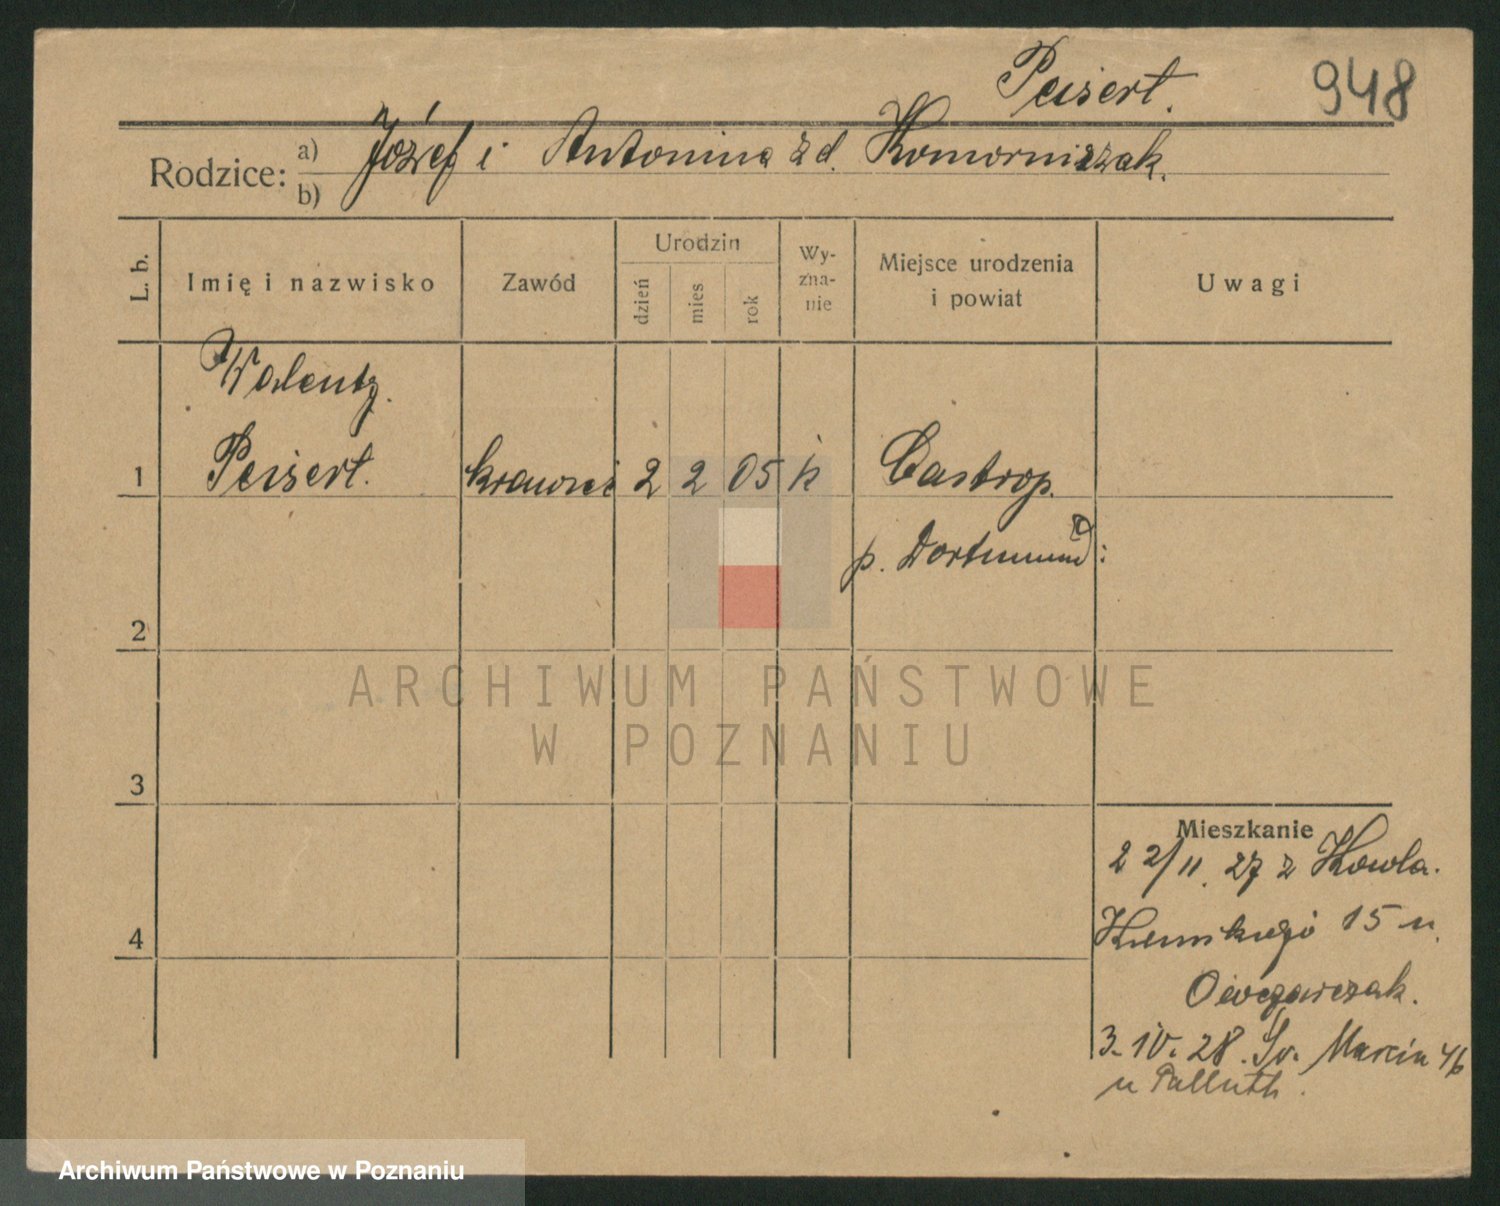 Peisert.
948
Rodzice: a) Józef i Antonina z d. Komorniczak.
b)
L. b.
Imię i nazwisko
Zawód
Urodzin
dzień
mies
rok
Wy-
zna-
nie
Miejsce urodzenia
i powiat
Uwagi
Walenty.
1 Peisert. krawiec 2 2 05 k Castrop.
p. Dortmund:
2
ARCHIWUM PAŃSTWOWE
W POZNANIU
3
Mieszkanie
22/II. 27 z Kowla.
15 u.
4
Owczarczak.
3. IV. 28. Św. Marcin 46
u Palluth.
Archiwum Państwowe w Poznaniu